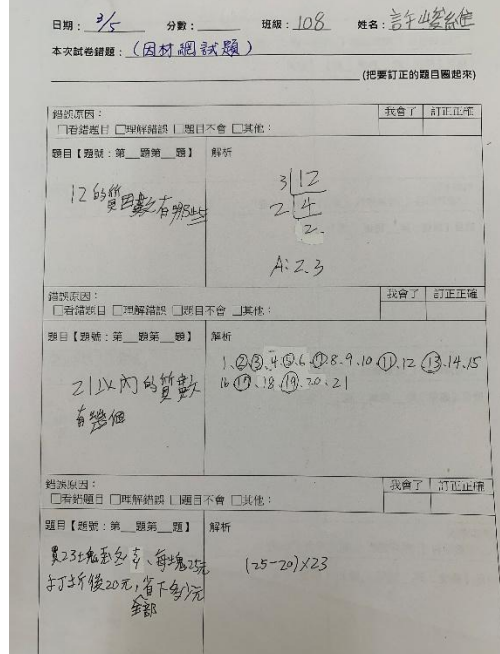 日期：3/5 分數： 班級：108 姓名：許峻維
本次試卷錯題：(因材網試題)
(把要訂正的題目圈起來)
錯誤原因： 我會了 訂正正確
□看錯題目 □理解錯誤 □題目不會 □其他：
題目【題號：第__題第__題】 解析
12的質因數有哪些
3|12
2|4
2
A：2.3
錯誤原因： 我會了 訂正正確
□看錯題目 □理解錯誤 □題目不會 □其他：
題目【題號：第__題第__題】 解析
21以內的質數
有幾個
1、②③、4、⑤、6、⑦、8、9、10、⑪、12、⑬、14、15
16、⑰、18、⑲、20、21
錯誤原因： 我會了 訂正正確
□看錯題目 □理解錯誤 □題目不會 □其他：
題目【題號：第__題第__題】 解析
買23塊 每塊25元
打折後20元，省下多少元
全部
(25-20)×23